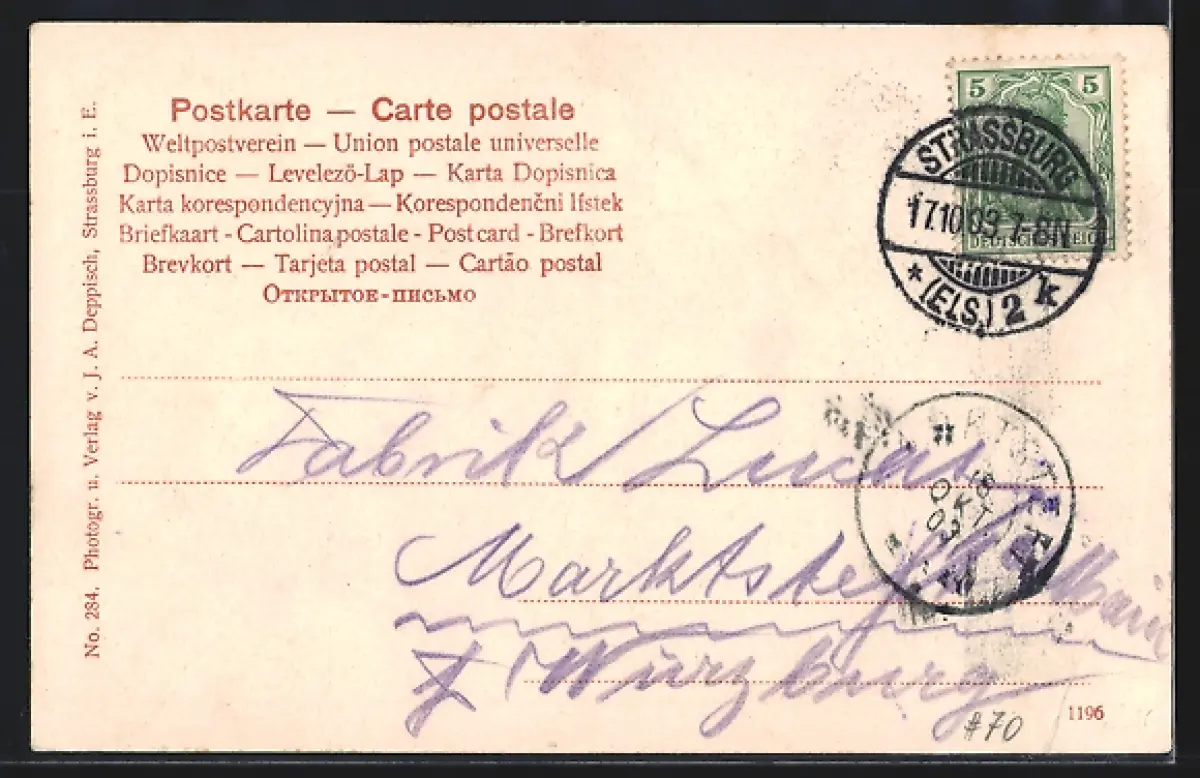 Postkarte — Carte postale
Weltpostverein — Union postale universelle
Dopisnice — Levelező-Lap — Karta Dopisnica
Karta korespondencyjna — Korespondenčni listek
Briefkaart - Cartolina postale - Post card - Brefkort
Brevkort — Tarjeta postal — Cartão postal
Открытое-письмо
No. 284. Photogr. u. Verlag v. J. A. Deppisch, Strassburg i. E.
5 5
DEUTSCHES REICH
STRASSBURG
17.10.03. 7-8N
* (ELS.) 2 k
18
OKT
03
Fabrik Lucas
Marktsteft a/Main
b/Würzburg
1196
#70